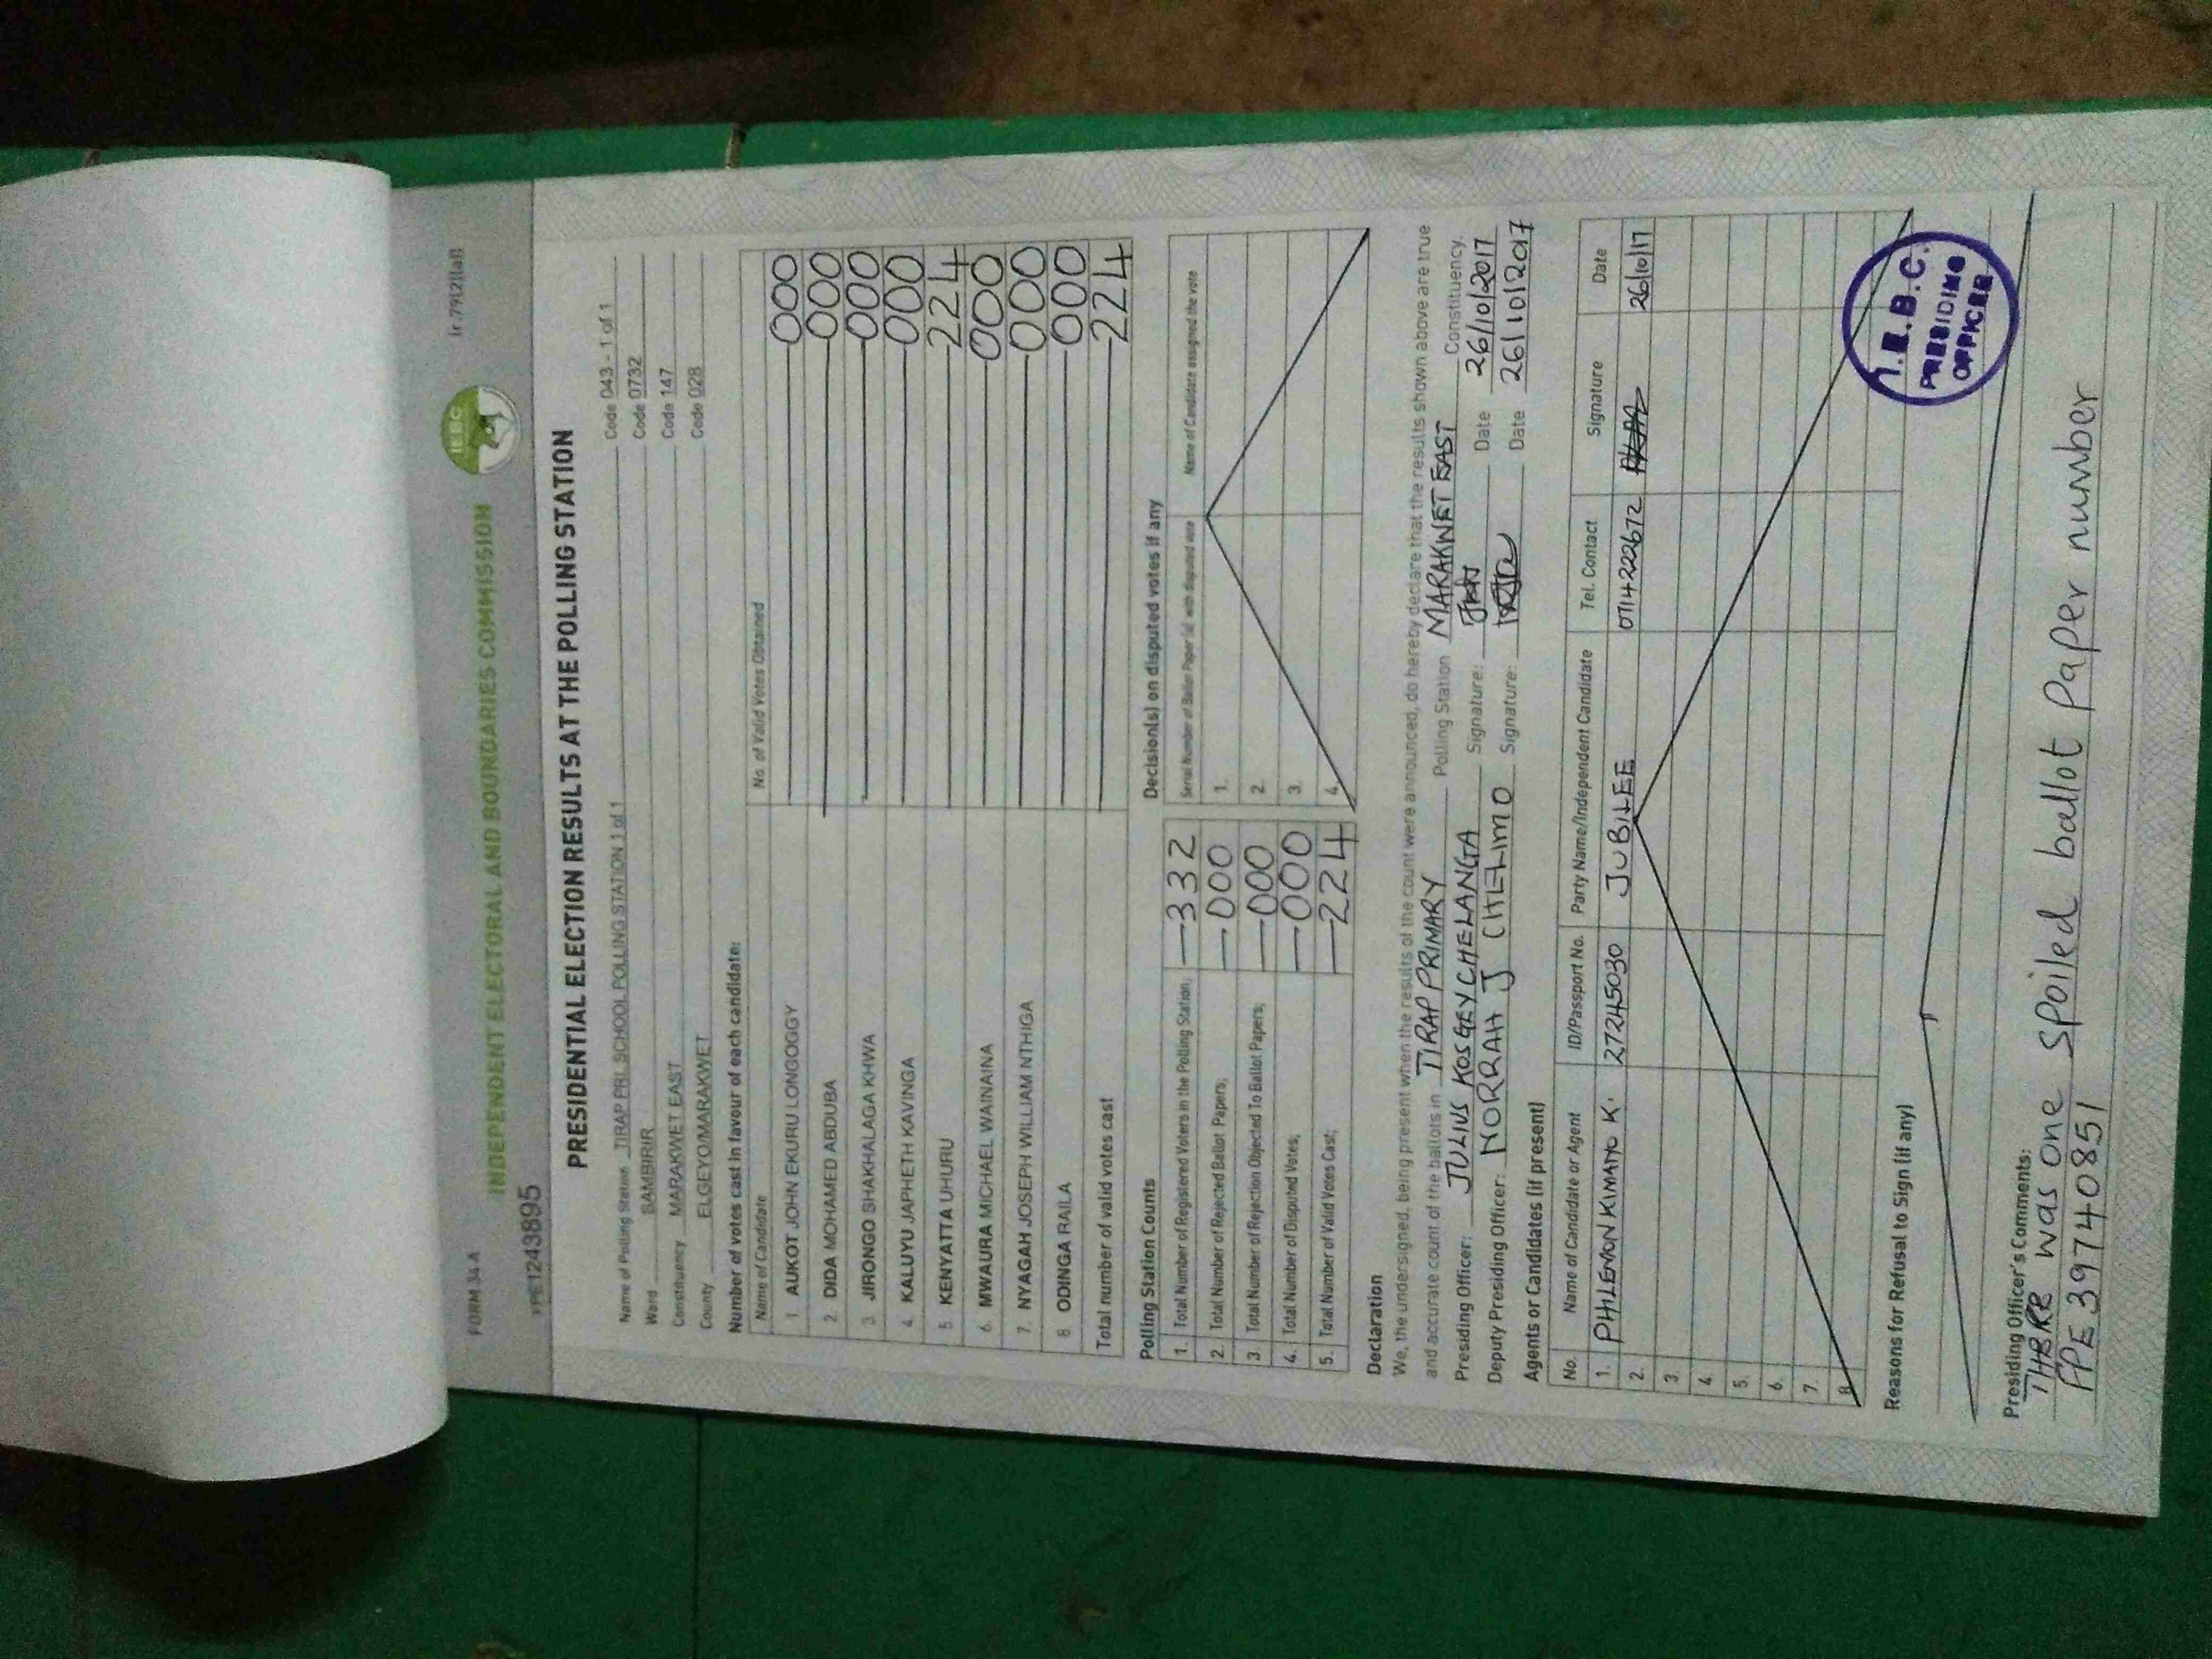 FORM 34 A
INDEPENDENT ELECTORAL AND BOUNDARIES COMMISSION
IEBC
(r.79(2)(a))
PE1243895
PRESIDENTIAL ELECTION RESULTS AT THE POLLING STATION
Name of Polling Station TIRAP PRI. SCHOOL POLLING STATION 1 of 1 Code 043 - 1 of 1
Ward SAMBIRIR Code 0732
Constituency MARAKWET EAST Code 147
County ELGEYO/MARAKWET Code 028
Number of votes cast in favour of each candidate:
Name of Candidate No. of Valid Votes Obtained
1. AUKOT JOHN EKURU LONGOGGY 000
2. DIDA MOHAMED ABDUBA 000
3. JIRONGO SHAKHALAGA KHWA 000
4. KALUYU JAPHETH KAVINGA 000
5. KENYATTA UHURU 224
6. MWAURA MICHAEL WAINAINA 000
7. NYAGAH JOSEPH WILLIAM NTHIGA 000
8. ODINGA RAILA 000
Total number of valid votes cast 224
Polling Station Counts
1. Total Number of Registered Voters in the Polling Station; 332
2. Total Number of Rejected Ballot Papers; 000
3. Total Number of Rejection Objected To Ballot Papers; 000
4. Total Number of Disputed Votes; 000
5. Total Number of Valid Votes Cast; 224
Decision(s) on disputed votes if any
Serial Number of Ballot Paper(s) with disputed vote Name of Candidate assigned the vote
1.
2.
3.
4.
Declaration
We, the undersigned, being present when the results of the count were announced, do hereby declare that the results shown above are true
and accurate count of the ballots in TIRAP PRIMARY Polling Station MARAKWET EAST Constituency.
Presiding Officer: JULIUS KOSGEY CHELANGA Signature: Date 26/10/2017
Deputy Presiding Officer: NORRAH J CHELIMO Signature: Date 26/10/2017
Agents or Candidates (if present)
No. Name of Candidate or Agent ID/Passport No. Party Name/Independent Candidate Tel. Contact Signature Date
1. PHILEMON KIMAIYO K. 27245030 JUBILEE 0714222672 26/10/17
2.
3.
4.
5.
6.
7.
8.
Reasons for Refusal to Sign (if any)
I.E.B.C.
PRESIDING
OFFICER
Presiding Officer's Comments:
THERE was one spoiled ballot paper number
PPE 39740851